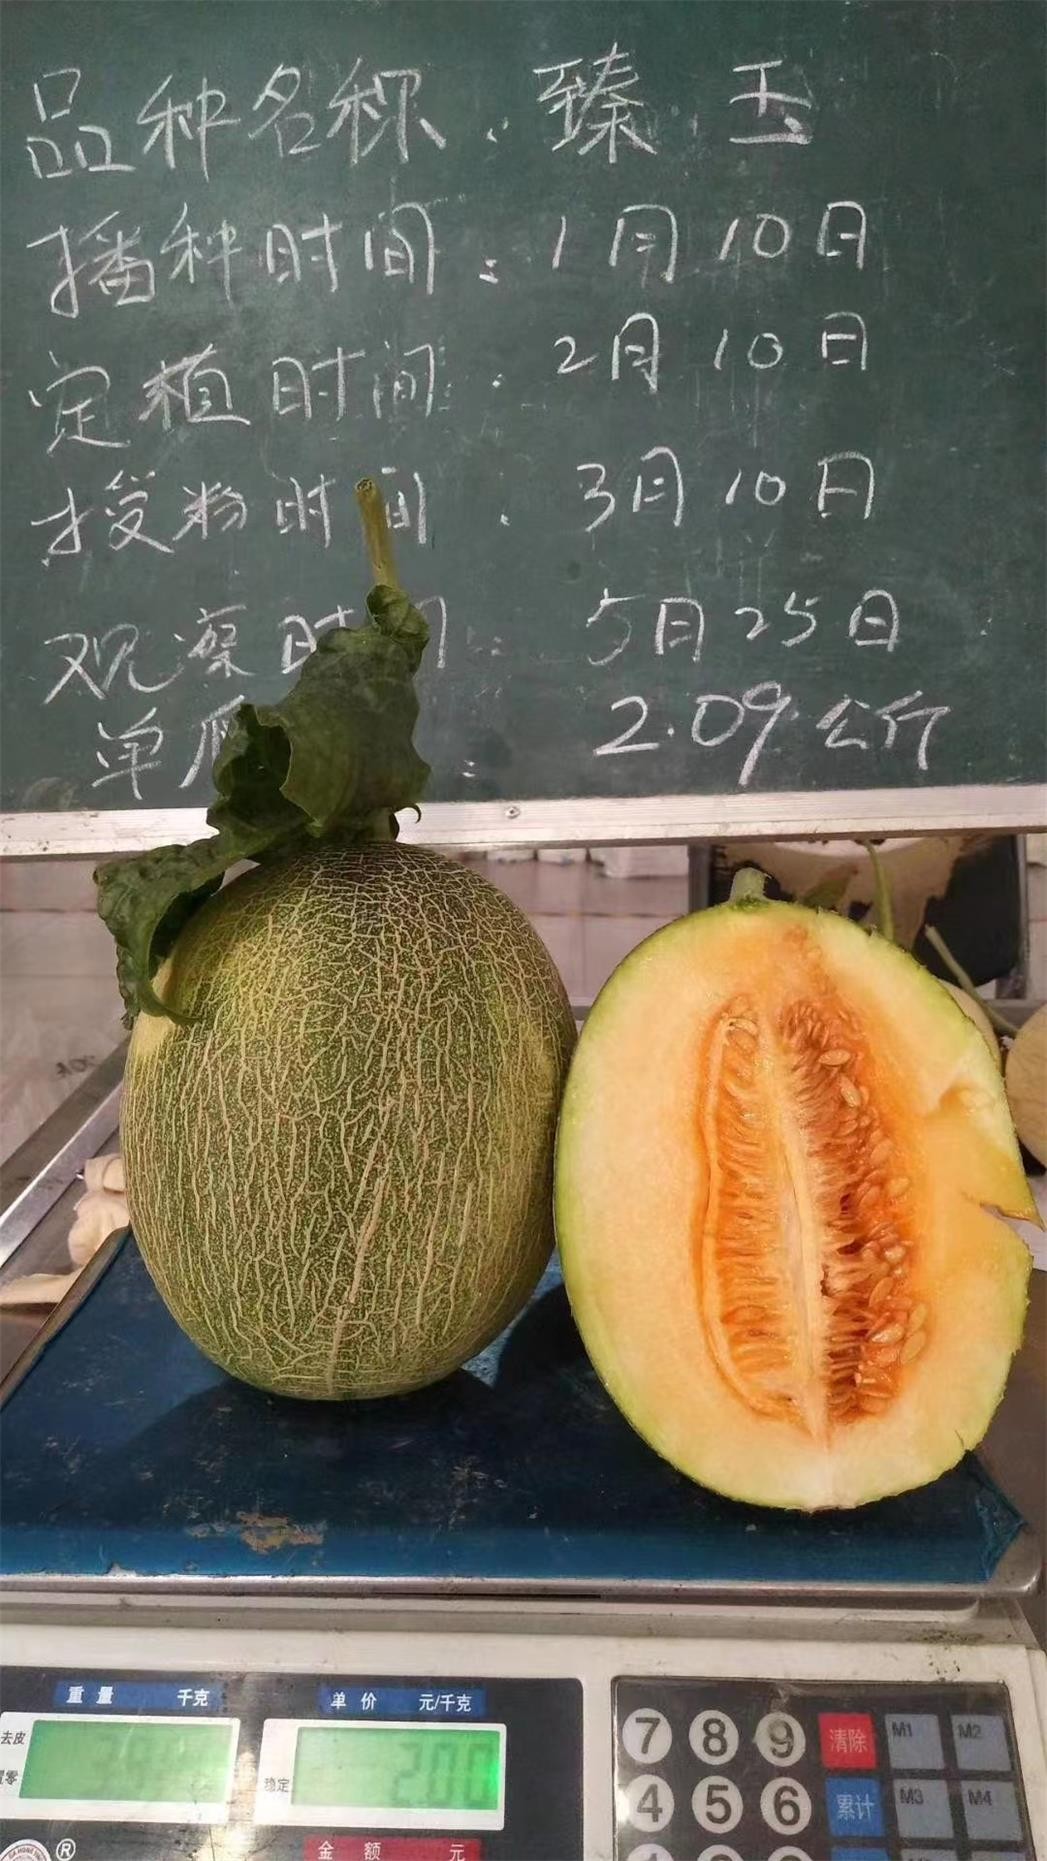 品种名称：臻玉
播种时间：1月10日
定植时间：2月10日
授粉时间：3月10日
观察时间：5月25日
单瓜：2.09公斤
重量 千克 单价 元/千克
去皮
置零 稳定 2.00
金额 元
7 8 9 清除 M1 M2
4 5 6 累计 M3 M4
®